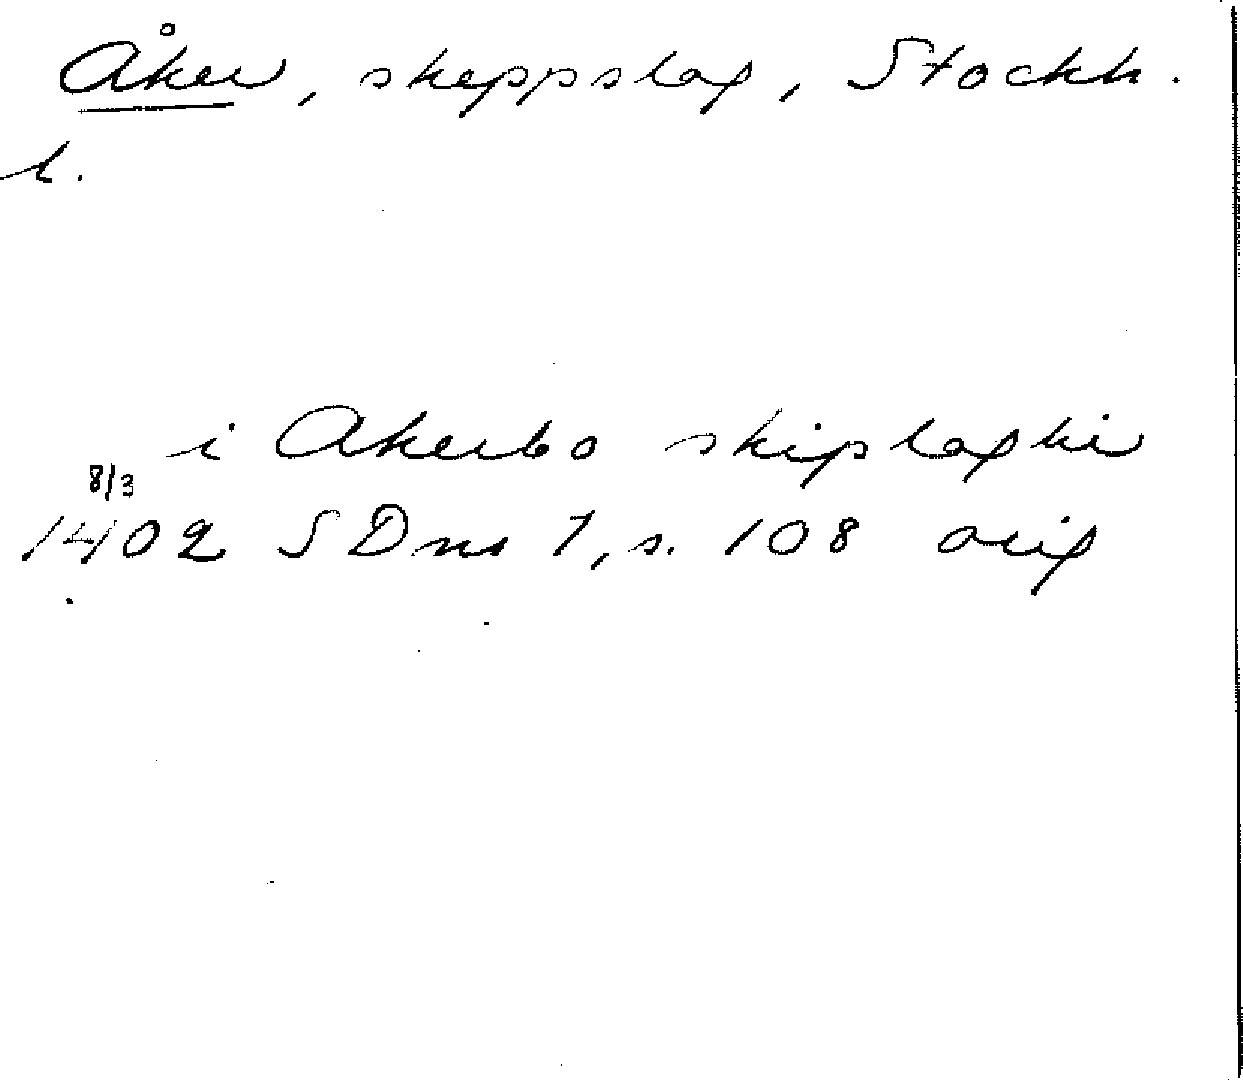 Åker, skeppslag, Stockh.
l.
i Akerbo skiplaghi
8/3
1402 SDns 1, s. 108 orig